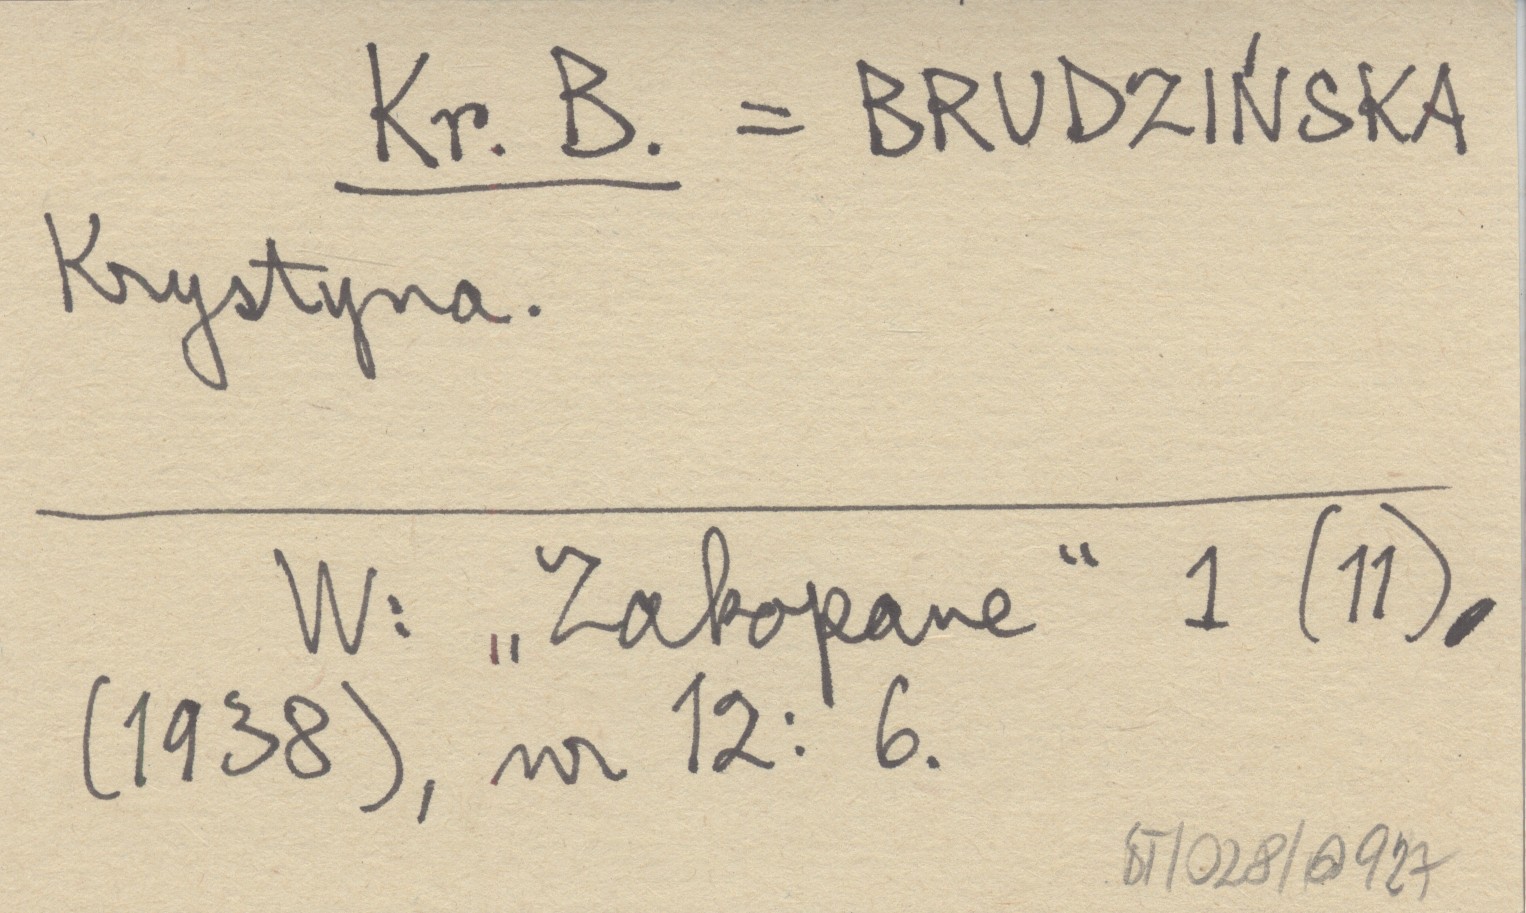 Kr. B. = BRUDZIŃSKA
Krystyna.
W: „Zakopane“ 1 (11),
(1938), nr 12: 6.
BT/028/0927